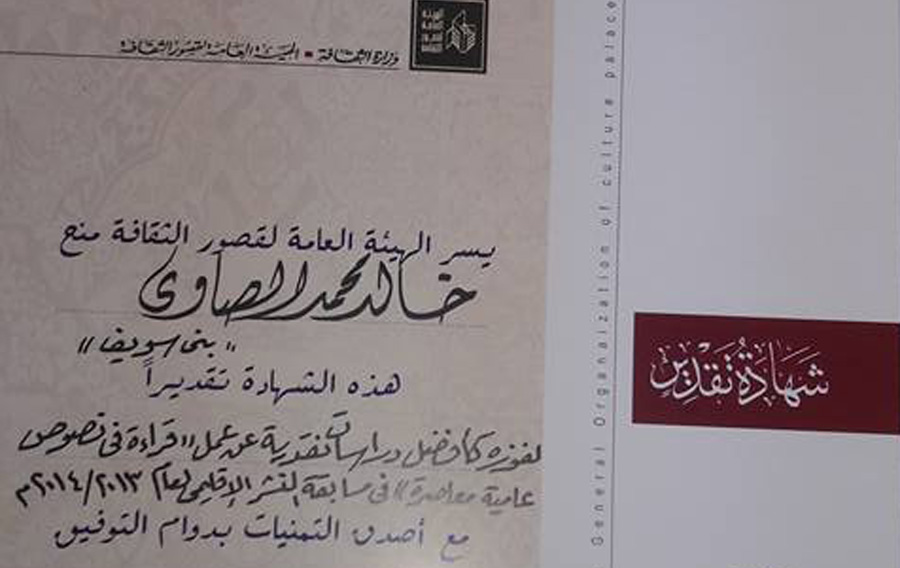 وزارة الثقافة ▪ الهيئة العامة لقصور الثقافة
يسر الهيئة العامة لقصور الثقافة منح
خالد محمد الصاوى
"بنى سويف"
هذه الشهادة تقديراً
لفوزه كأفضل دراسات نقدية عن عمل "قراءة فى نصوص
عامية معاصرة" فى مسابقة النشر الإقليمى لعام ٢٠١٤/٢٠١٣م
مع أصدق التمنيات بدوام التوفيق
General Organaization of culture palace
شَهَادَةُ تَقْدِيْرٍ